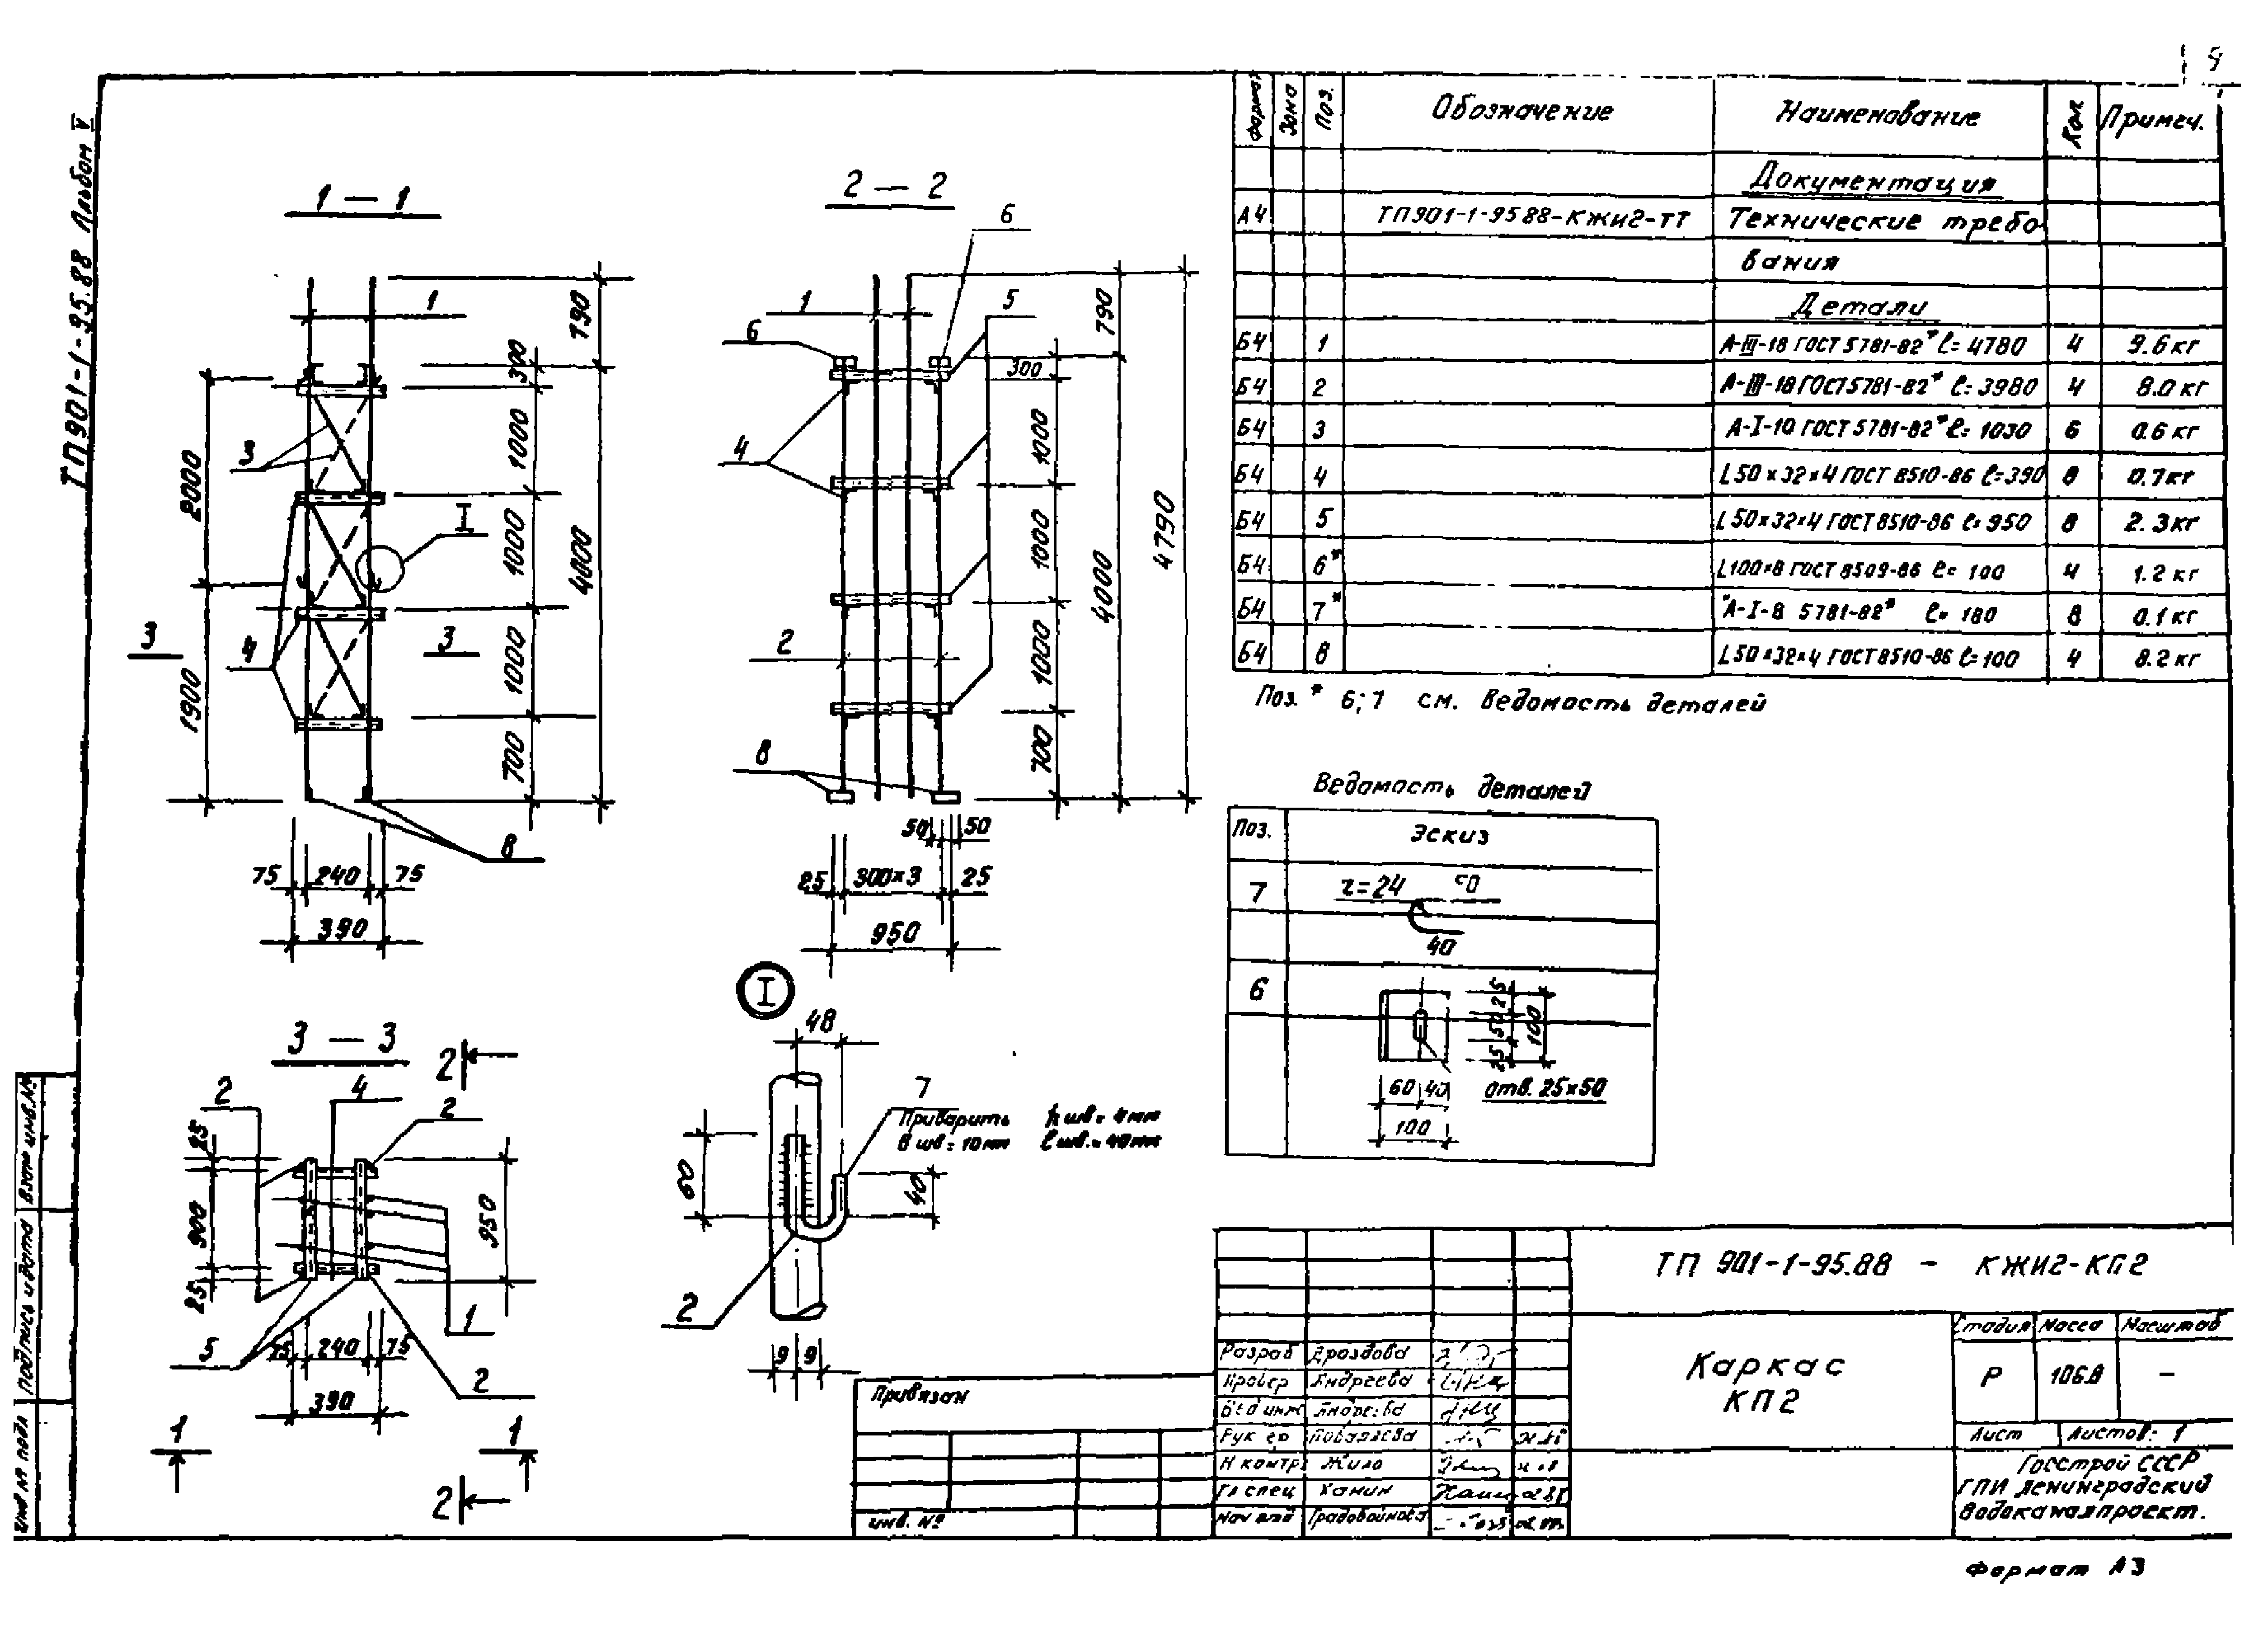 9
ТП901-1-95.88 Альбом V
1 — 1
1
3
4
I
3
3
8
2000
1900
790
300
1000
1000
1000
700
4000
75 240 75
390
2 — 2
6
1
5
6
4
2
8
790
300
1000
1000
1000
700
4000
4790
50 50
25 300×3 25
950
3 — 3
2
2
4
2
25
900
25
950
1
5
2
75 240 75
390
1
1
2
I
48
7
Приварить h шв.= 4мм
В шв = 10мм ℓ шв.= 40мм
60
40
2
9 9
Формат Зона Поз. Обозначение Наименование Кол Примеч.
Документация
А4 ТП901-1-95 88-КЖИ2-ТТ Технические требо-
вания
Детали
Б4 1 А-III-18 ГОСТ 5781-82* ℓ= 4780 4 9.6 кг
Б4 2 А-III-18 ГОСТ 5781-82* ℓ= 3980 4 8.0 кг
Б4 3 А-I-10 ГОСТ 5781-82* ℓ= 1030 6 0.6 кг
Б4 4 L 50×32×4 ГОСТ 8510-86 ℓ=390 8 0.7кг
Б4 5 L 50×32×4 ГОСТ 8510-86 ℓ= 950 8 2.3кг
Б4 6* L100×8 ГОСТ 8509-86 ℓ= 100 4 1.2 кг
Б4 7* А-I-8 5781-82* ℓ= 180 8 0.1 кг
Б4 8 L 50×32×4 ГОСТ 8510-86 ℓ=100 4 8.2 кг
Поз. * 6; 7 см. Ведомость деталей
Ведомость деталей
Поз. Эскиз
7 r=24
40
6
25
50
25
100
60 40
100
отв. 25×50
ТП 901-1-95.88 - КЖИ2-КП2
Каркас
КП2
Стадия Масса Масштаб
Р 106.8 —
Лист Листов: 1
Госстрой СССР
ГПИ Ленинградский
Водоканалпроект.
Разраб Дроздова
Провер Андреева
Вед инж Андреева
Рук гр
Н контр Жило
Гл спец Ханин
Нач отд Градобойнова
Привязан
инв. №
Взам инв.№
Подпись и дата
Инв № подл
Формат А3